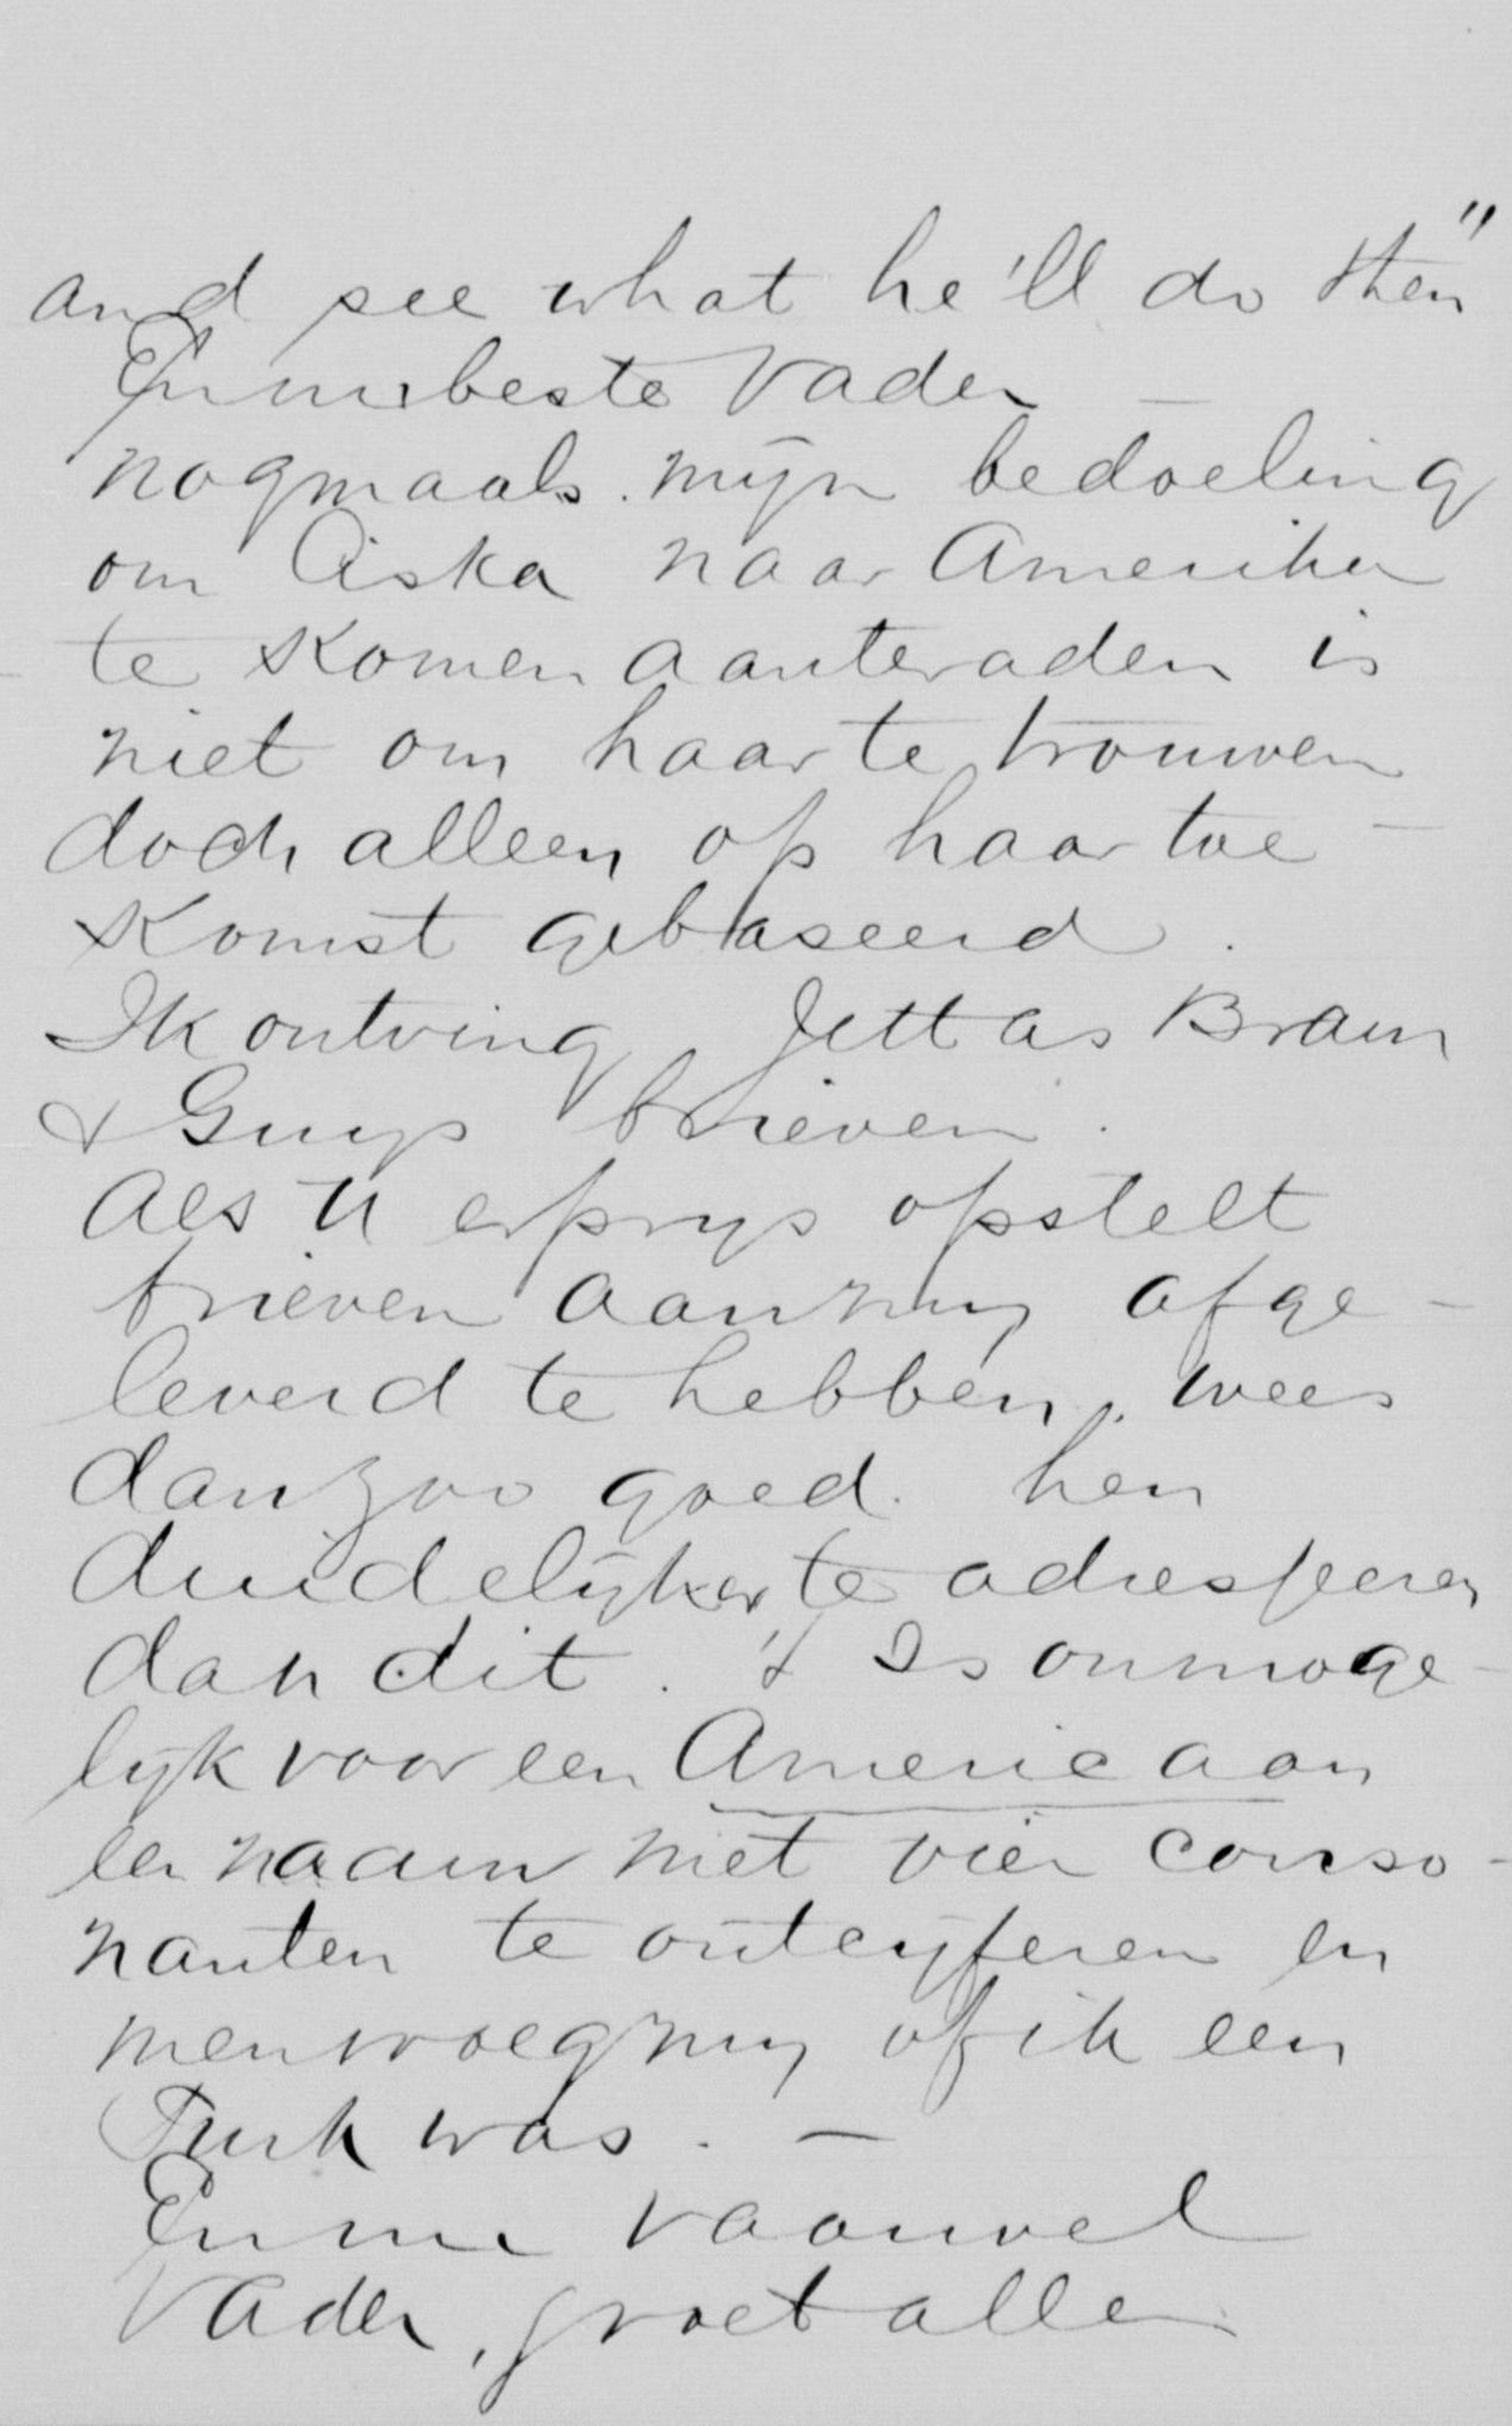 and see what he'll do then"
En nu beste Vader —
nogmaals. mijn bedoeling
om Ciska naar Amerika
te komen aanteraden is
niet om haar te trouwen
doch alleen op haar toe-
komst gebaseerd.
Ik ontving Jettas Bram
& Guys brieven.
Als U erprys opstelt
brieven aan my afge-
leverd te hebben, wees
dan zoo goed. hen
duidelijker te adresseren
dan dit. 't Is onmoge-
lijk voor een Americaan
een naam met vier conso-
nanten te ontcyferen en
men vroeg my of ik een
Turk was. —
En nu vaarwel
Vader, groet allen